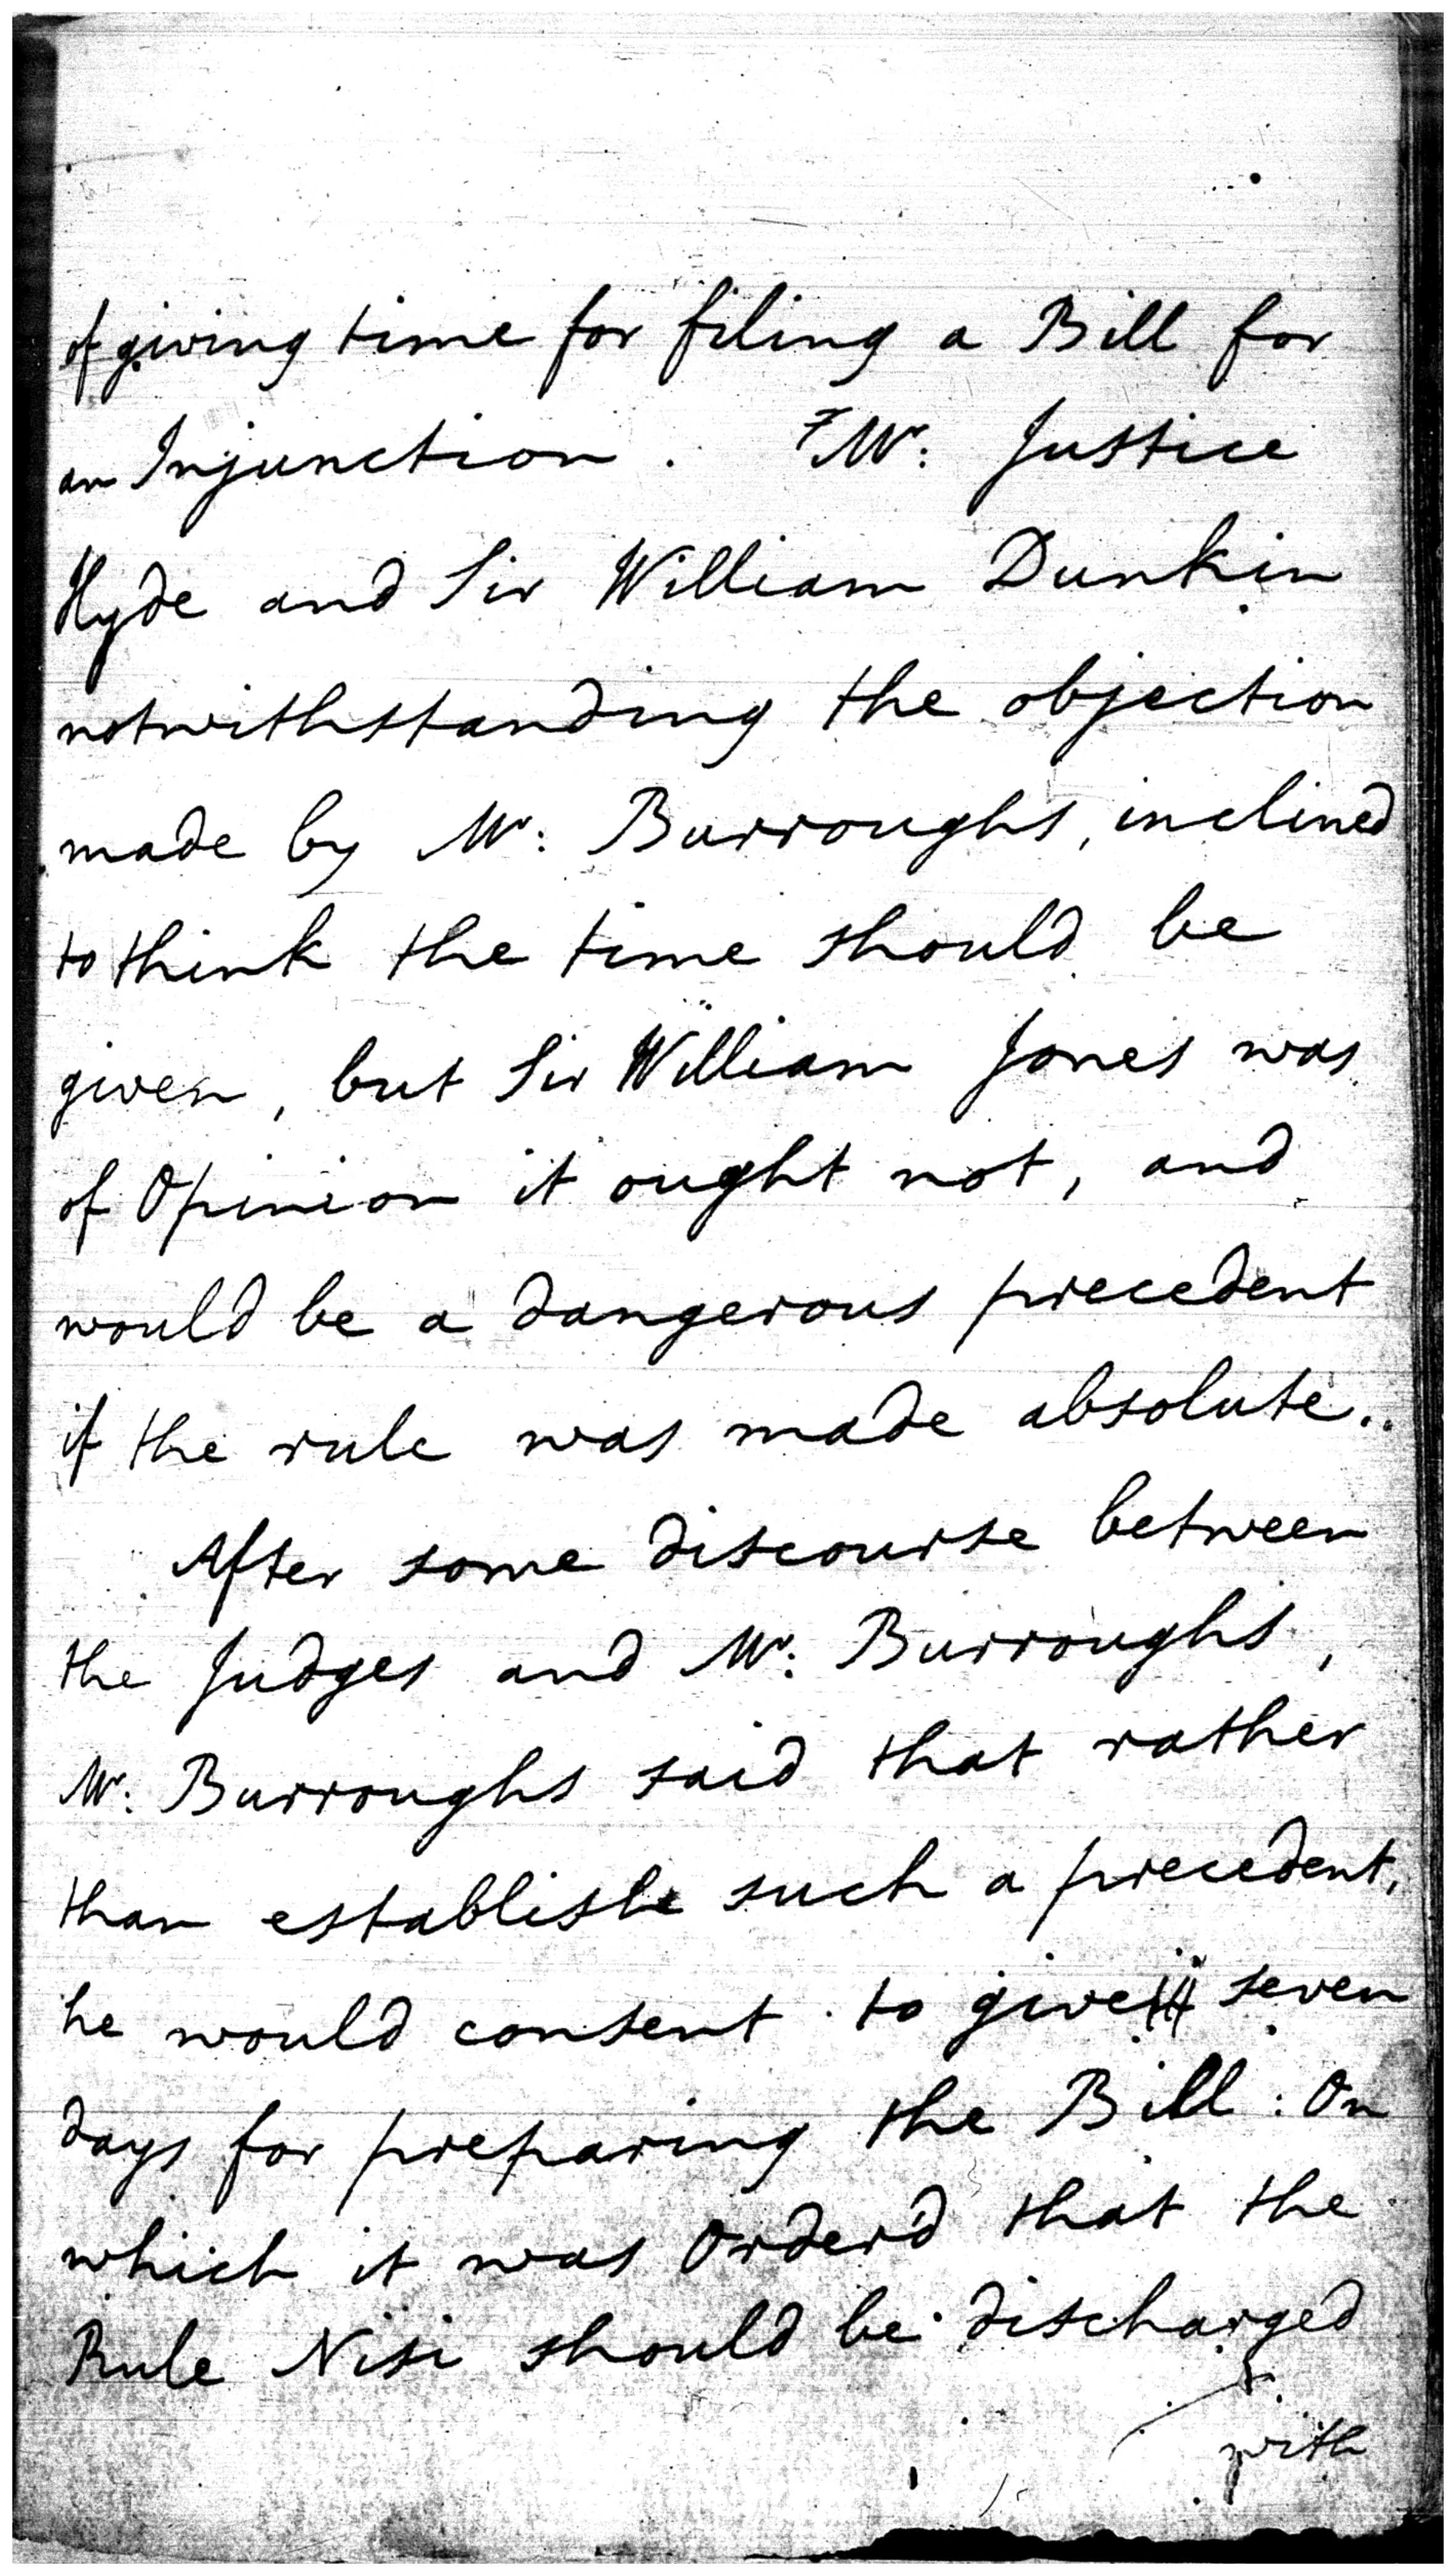 of giving time for filing a Bill for
an Injunction. Mr: Justice
Hyde and Sir William Dunkin
notwithstanding the objection
made by Mr: Burroughs, inclined
to think the time should be
given, but Sir William Jones was
of Opinion it ought not, and
would be a dangerous precedent
if the rule was made absolute..
After some discourse between
the Judges and Mr: Burroughs,
Mr: Burroughs said that rather
than establish such a precedent,
he would consent to give seven
days for preparing the Bill: On
which it was Order'd that the
Rule Nisi should be discharged
with